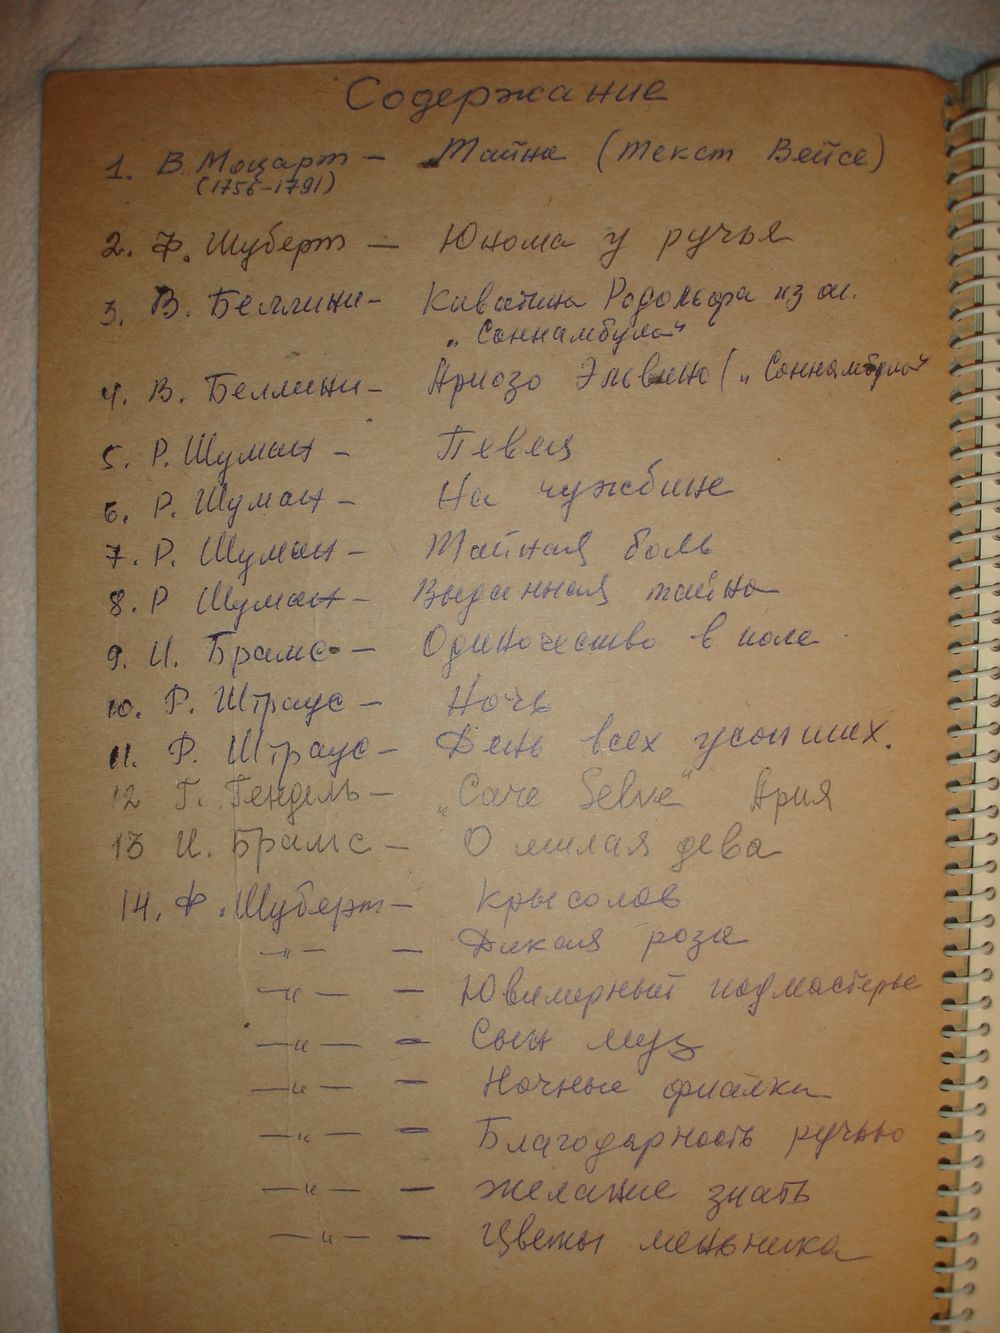 Содержание
1. В. Моцарт – Тайна (текст Вейсе)
(1756–1791)
2. Ф. Шуберт – Юноша у ручья
3. В. Беллини – Каватина Родольфа из оп.
„Соннамбула“
4. В. Беллини – Ариозо Эльвино („Соннамбула“
5. Р. Шуман – Певец
6. Р. Шуман – На чужбине
7. Р. Шуман – Тайная боль
8. Р Шуман – Выданная тайна
9. И. Брамс – Одиночество в поле
10. Р. Штраус – Ночь
11. Р. Штраус – День всех усопших.
12 Г. Гендель – „Care Selve“ Ария
13 И. Брамс – О милая дева
14. Ф. Шуберт – Крысолов
–„– – Дикая роза
–„– – Ювелирный подмастерье
–„– – Сын муз
–„– – Ночные фиалки
–„– – Благодарность ручью
–„– – Желание знать
–„– – Цветы мельника